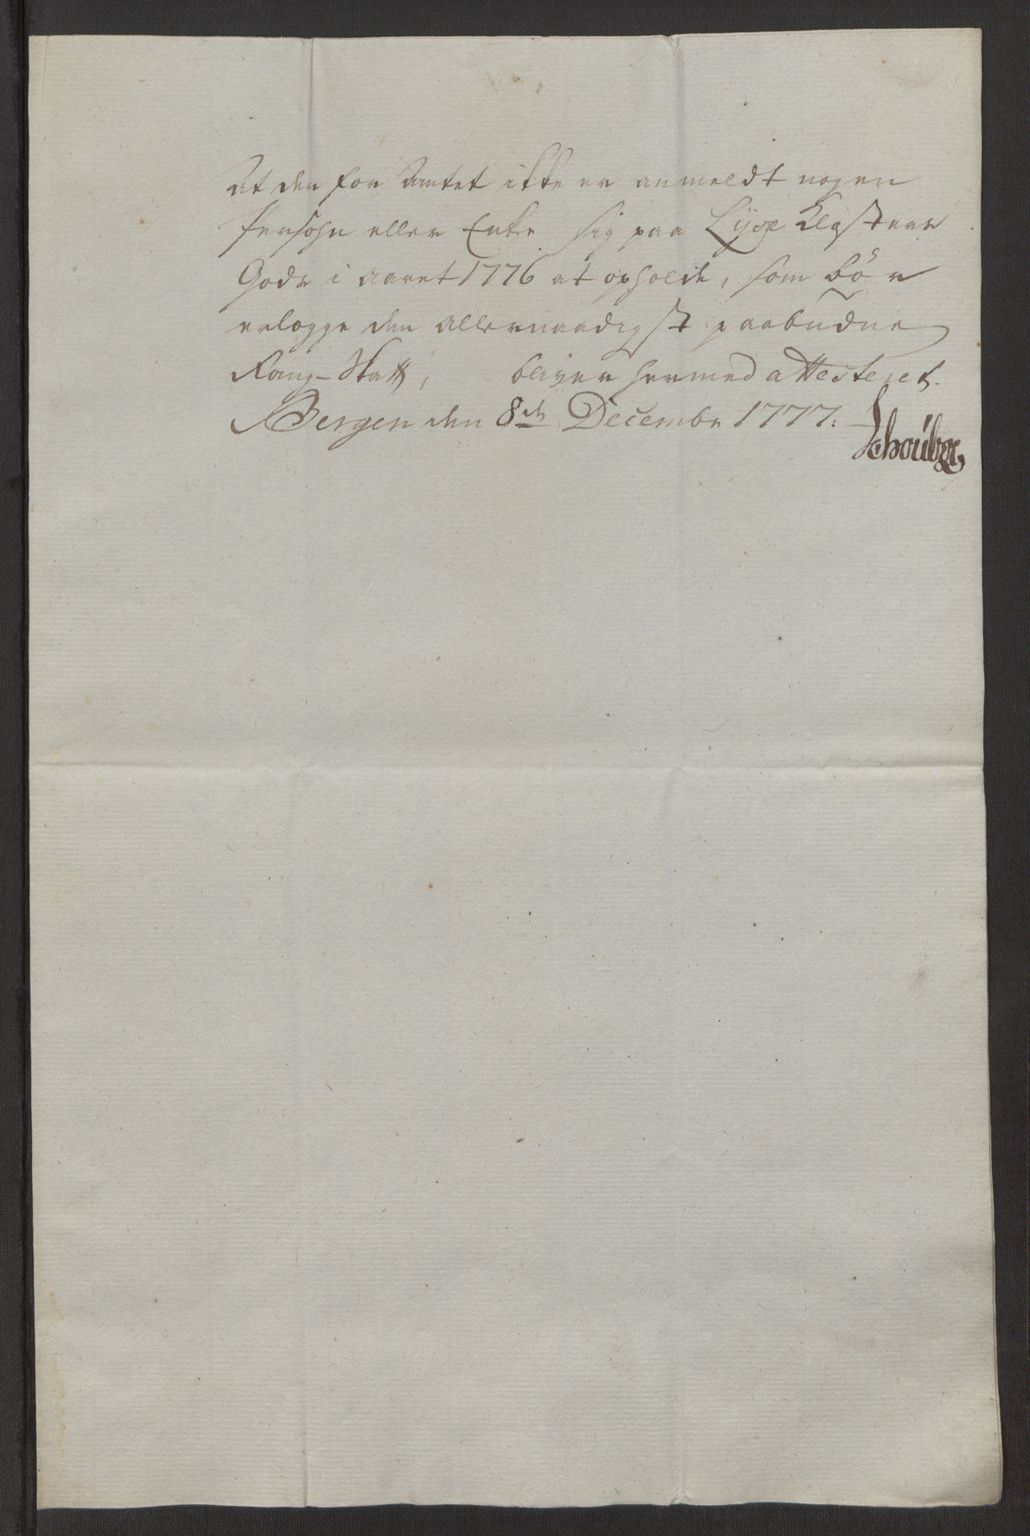 At der for Amtet ikke er anmeldt nogen
Persohn eller Enke sig paa Lyse Klosters
Gods i aaret 1776 at opholde, som bør
erlægge den allernaadigst paabudne
Rang-Skatt, bliver hermed attesteret.
Bergen den 8de Decembr 1777.
Schouboe